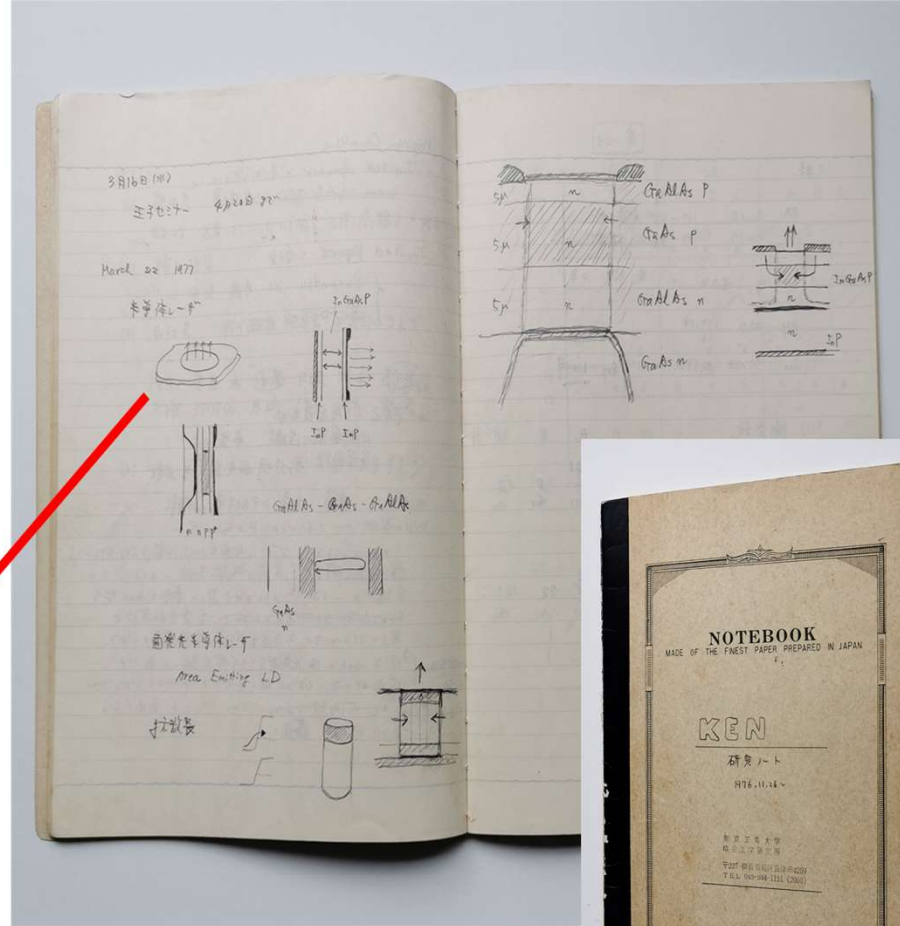 3月16日(水)
王子セミナー 4月20日まで
March 22 1977
半導体レーザ
InGaAsP
InP InP
n n p p+
GaAlAs - GaAs - GaAlAs
GaAs
n
面発光半導体レーザ
Area Emitting LD
拡散長
5μ n GaAlAs p
5μ n GaAs p
5μ n GaAlAs n
GaAs n
InGaAsP
n
n
InP
NOTEBOOK
MADE OF THE FINEST PAPER PREPARED IN JAPAN
KEN
研究ノート
1976.11.26~
東京工業大学
精密工学研究所